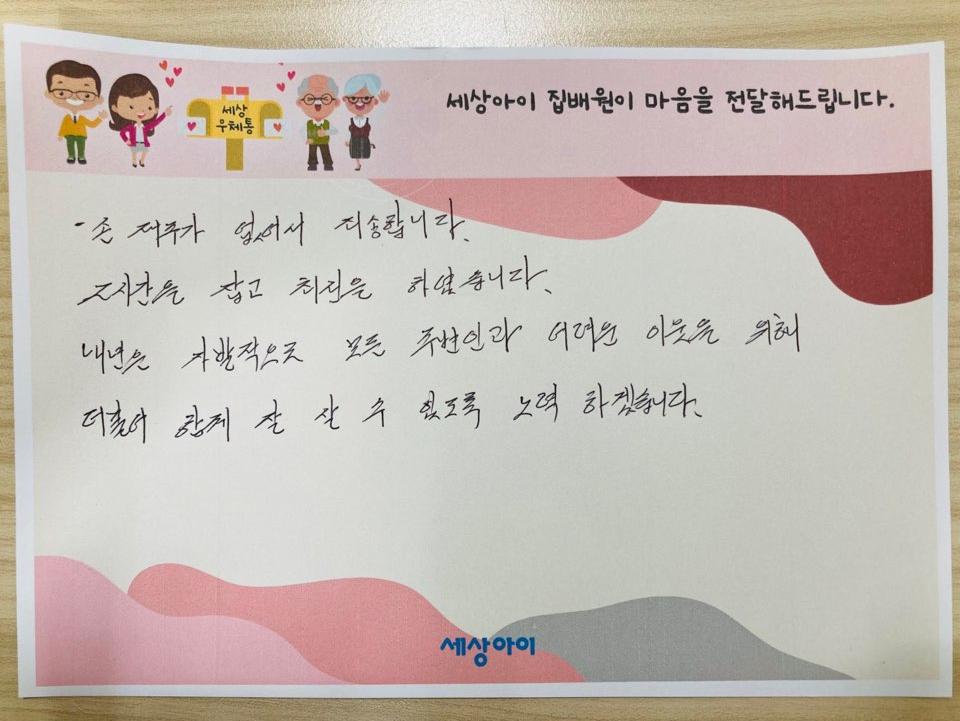 세상
우체통
세상아이 집배원이 마음을 전달해드립니다.
- 손 재주가 없어서 죄송합니다.
2시간을 잡고 최선을 하였습니다.
내년은 자발적으로 모든 주변인과 어려운 이웃을 위해
더불어 함께 잘 살 수 있도록 노력 하겠습니다.
세상아이